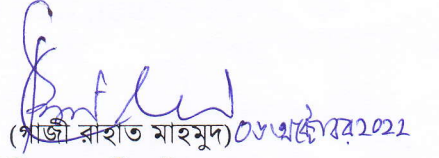 (গাজী রাহাত মাহমুদ) ০৬ অক্টোবর ২০২২